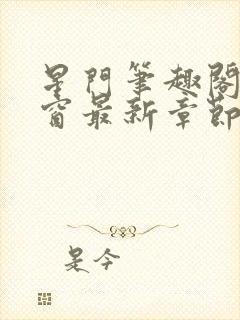 星門筆趣閣
窗最新章節
是今